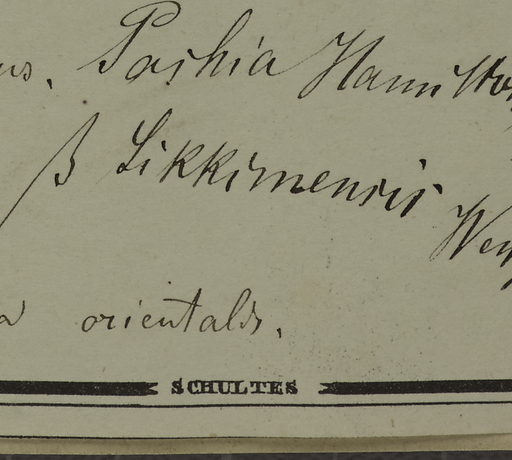 us. Pashia Hamilton
β Sikkimensis Wen
a orientalis.
SCHULTES